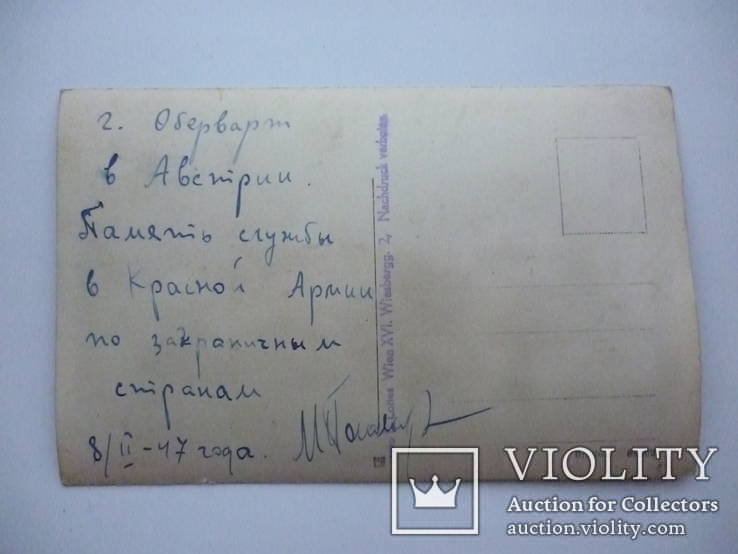 г. Оберварт
в Австрии.
Память службы
в Красной Армии
по закраничным
странам
8/II-47 года.
Wien XVI. Wiesbergg. 2, Nachdruck verboten.
VIOLITY
Auction for Collectors
auction.violity.com